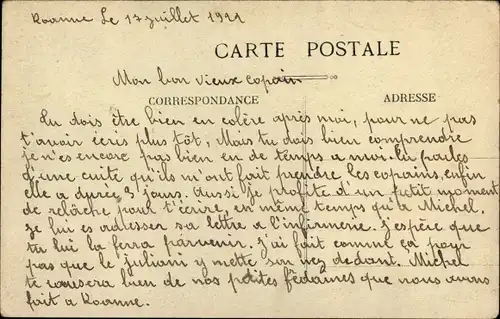 Roanne Le 17 juillet 1921
CARTE POSTALE
Mon bon vieux copain
CORRESPONDANCE
ADRESSE
Tu dois être bien en colère après moi, pour ne pas
t'avoir écris plus tôt, Mais tu dois bien comprendre
je n'es encore pas bien en de temps a moi. Tu parles
d'une cuite qu'ils m'ont fait prendre les copains, enfin
elle a durée 3 jours. Aussi je profite d'un petit moment
de relâche pour t'écrire, en même temps qu'a Michel.
Je lui es adresser sa lettre a l'infirmerie. J'espère que
tu lui la ferra parvenir. J'ai fait comme ça pour
pas que le juliani y mette son nez dedant. Michel
te causera bien de nos petites fedaines que nous avons
fait a Roanne.